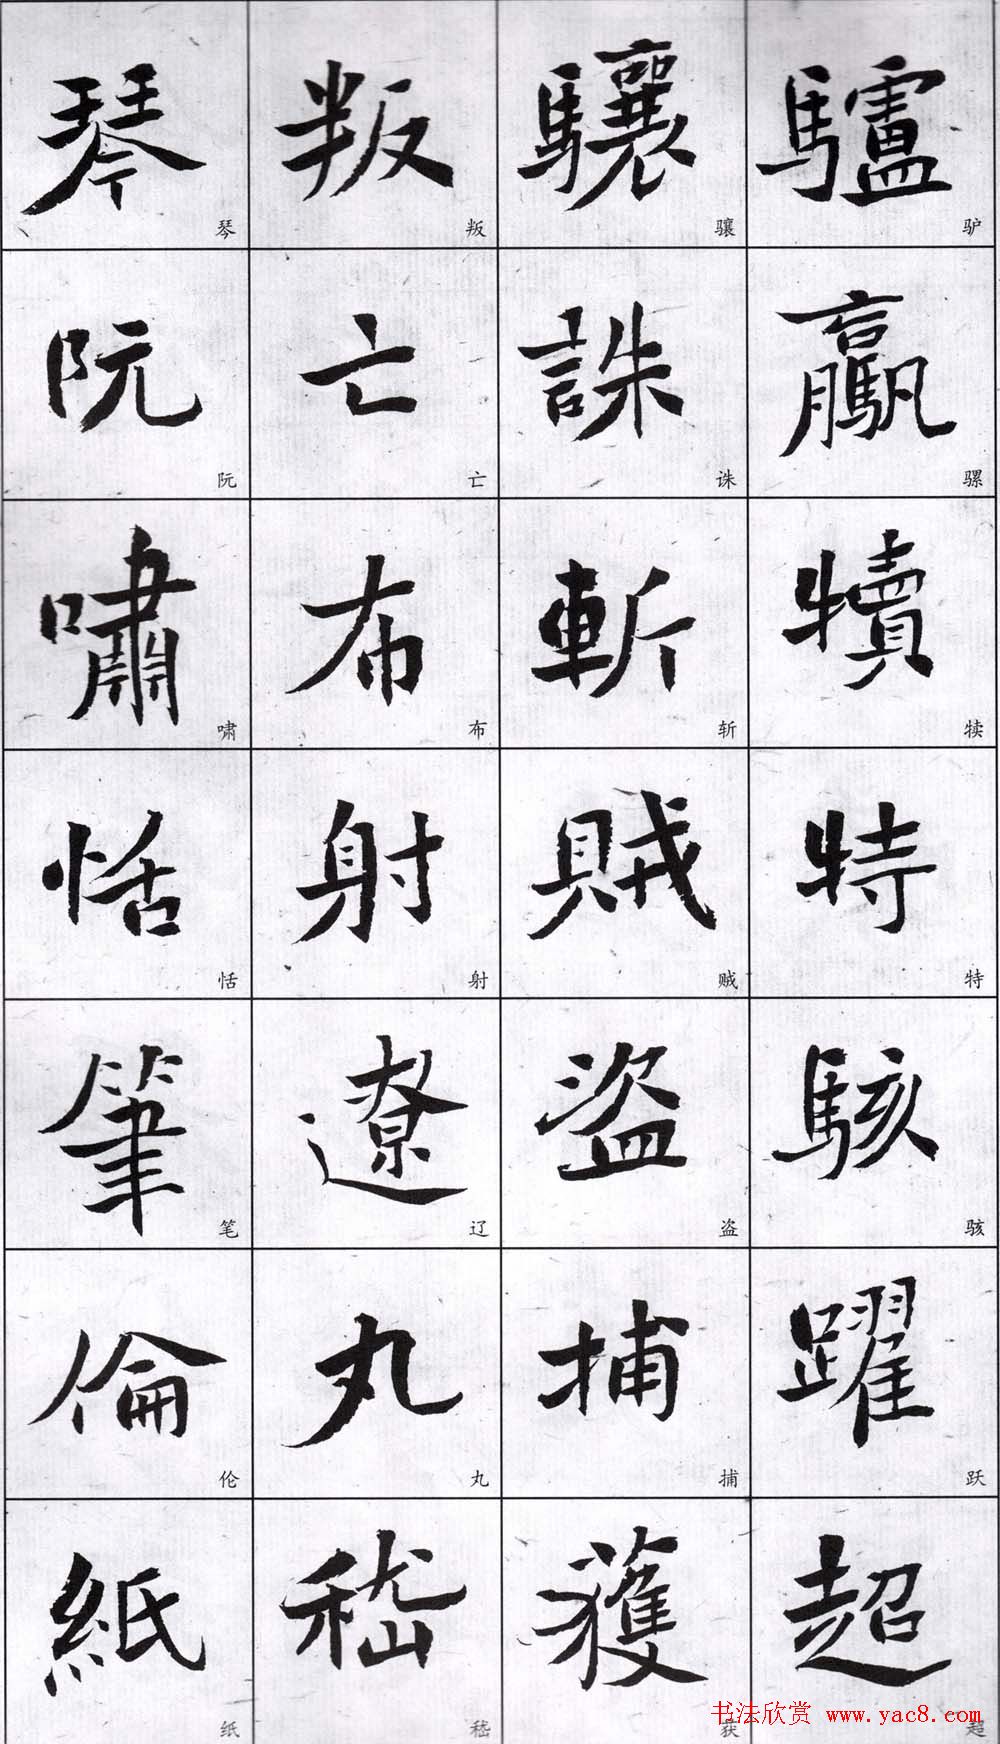 驢驘犢特駭躍超
驴骡犊特骇跃超
驤誅斬賊盜捕獲
骧诛斩贼盗捕获
叛亡布射遼丸嵇
叛亡布射辽丸嵇
琴阮嘯恬筆倫紙
琴阮啸恬笔伦纸
书法欣赏 www.yac8.com